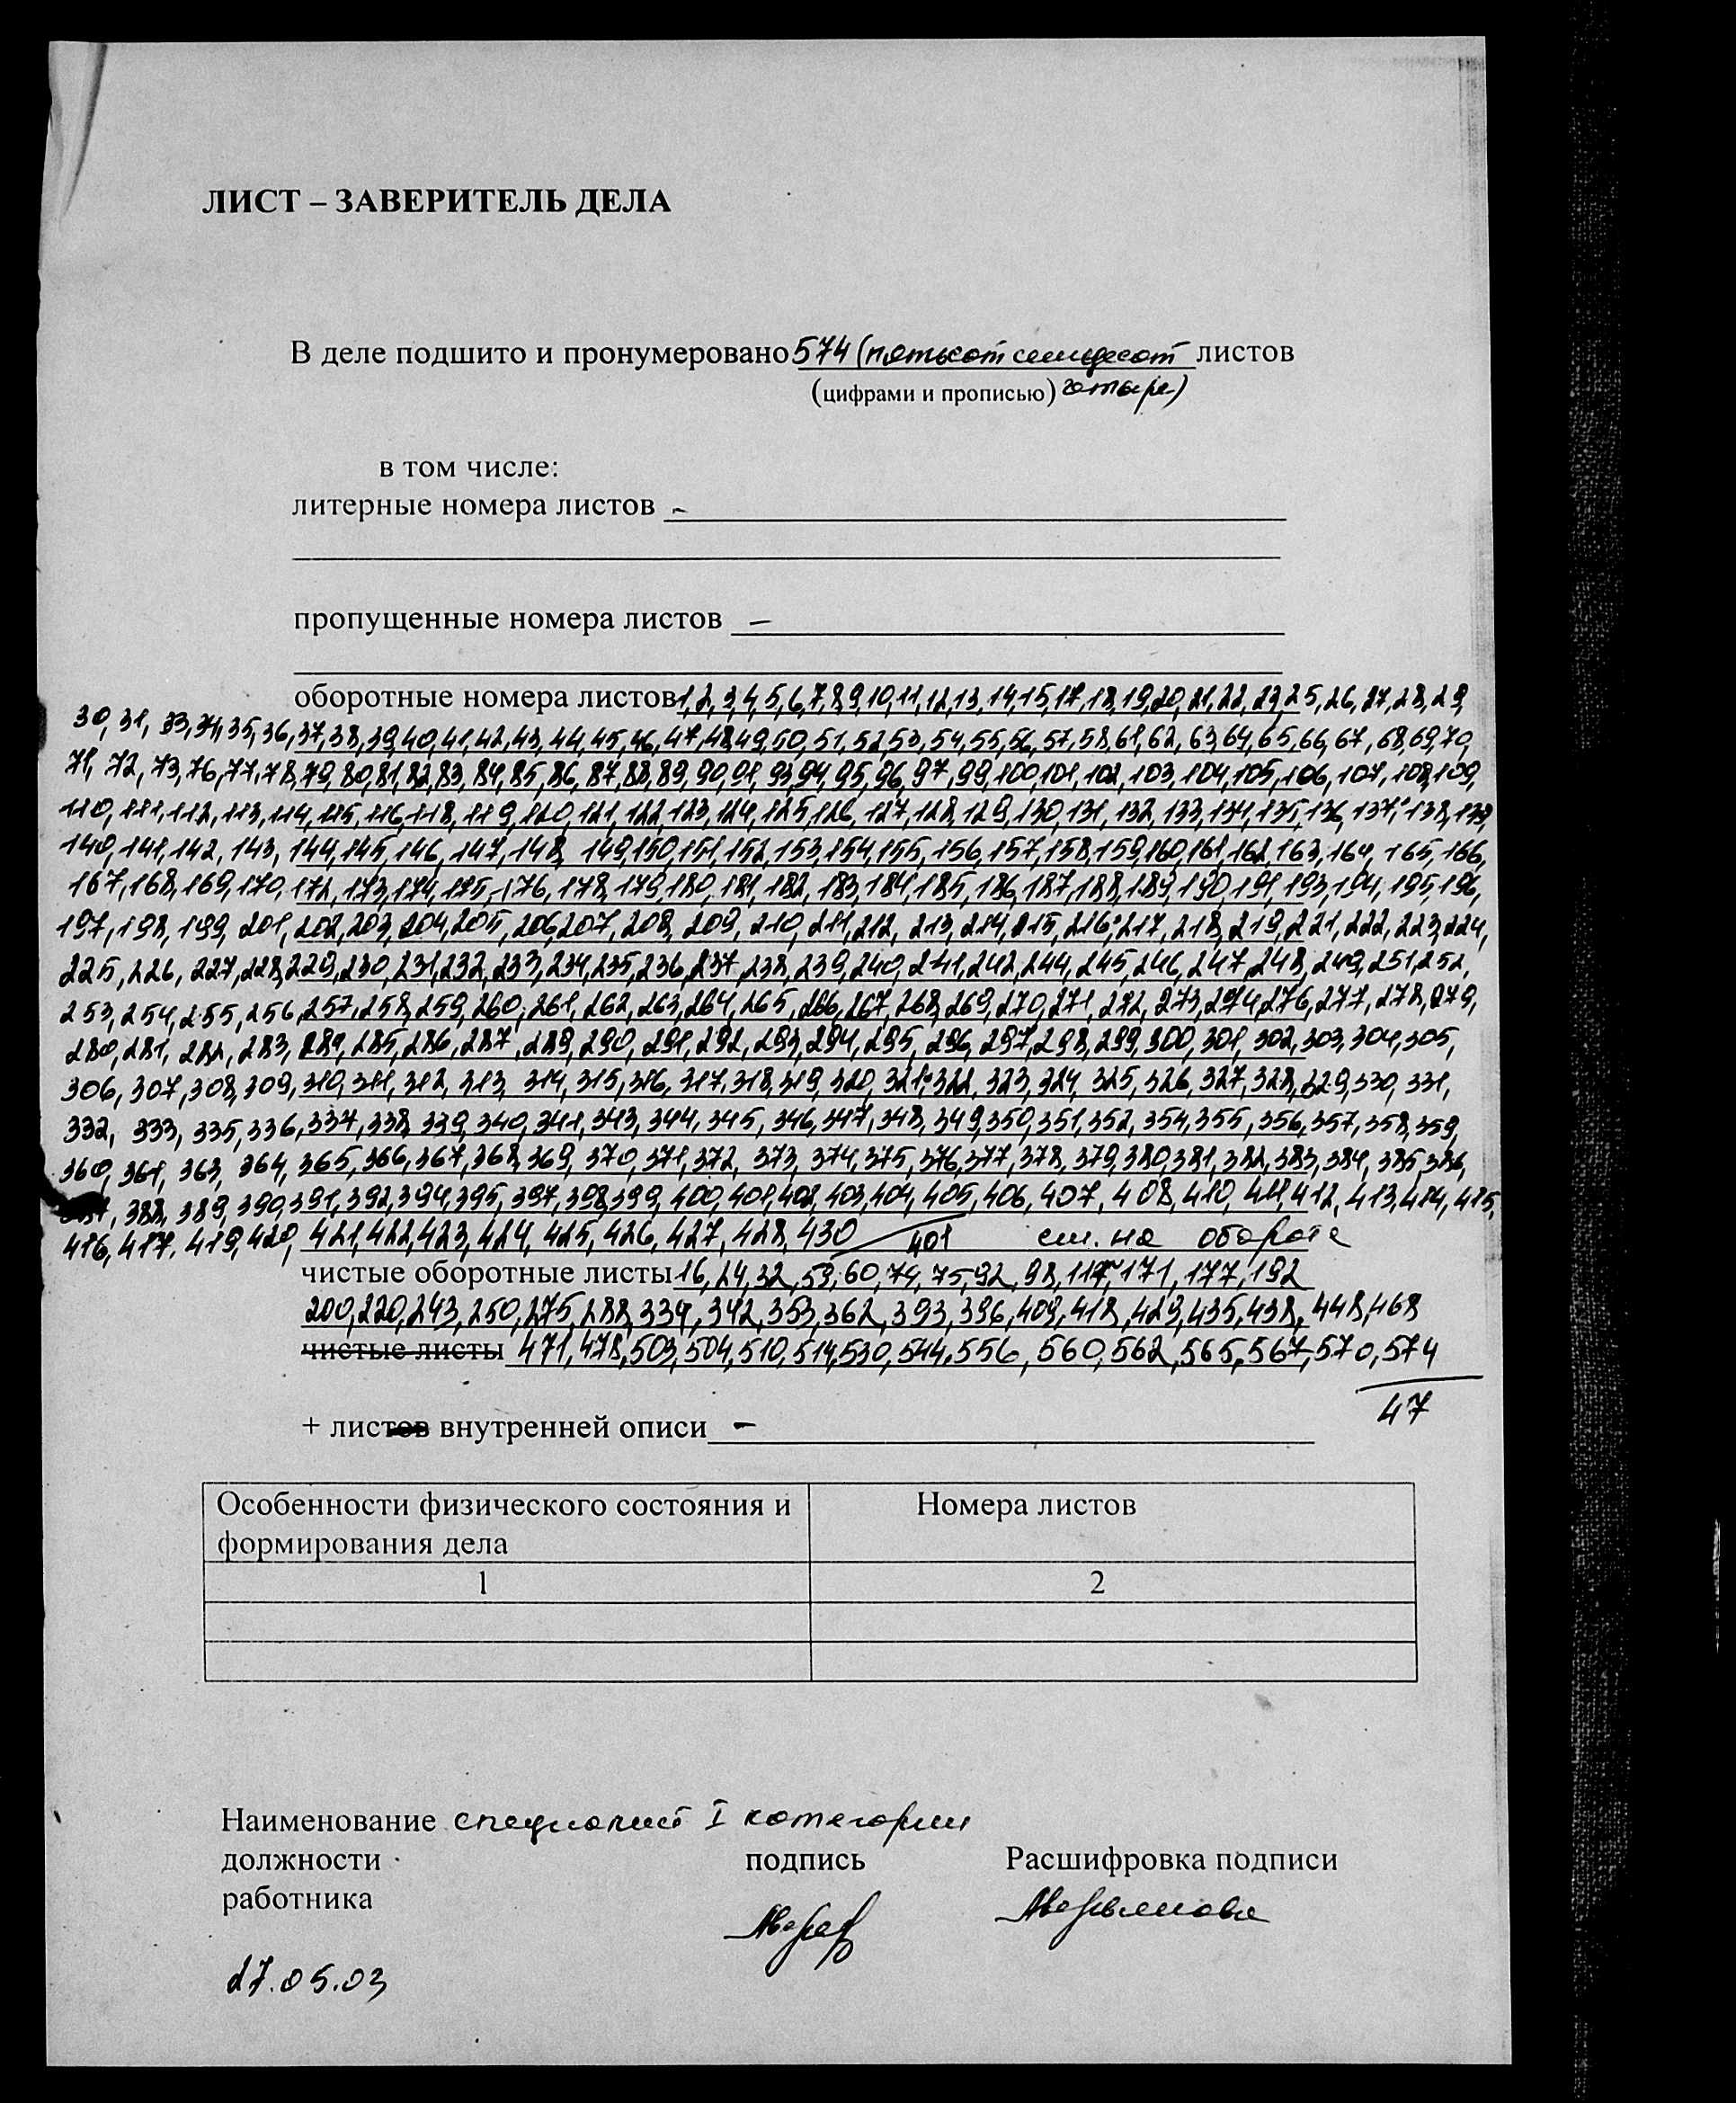 ЛИСТ – ЗАВЕРИТЕЛЬ ДЕЛА
В деле подшито и пронумеровано 574 (пятьсот семьдесят листов
(цифрами и прописью) четыре)
в том числе:
литерные номера листов -
пропущенные номера листов –
оборотные номера листов 1,2,3,4,5,6,7,8,9,10,11,12,13,14,15,17,18,19,20,21,22,23,25,26,27,28,29,
30,31,33,34,35,36,37,38,39,40,41,42,43,44,45,46,47,48,49,50,51,52,53,54,55,56,57,58,61,62,63,64,65,66,67,68,69,70,
71,72,73,76,77,78,79,80,81,82,83,84,85,86,87,88,89,90,91,93,94,95,96,97,99,100,101,102,103,104,105,106,107,108,109,
110,111,112,113,114,115,116,118,119,120,121,122,123,124,125,126,127,128,129,130,131,132,133,134,135,136,137,138,139,
140,141,142,143,144,145,146,147,148,149,150,151,152,153,154,155,156,157,158,159,160,161,162,163,164,165,166,
167,168,169,170,172,173,174,175,176,178,179,180,181,182,183,184,185,186,187,188,189,190,191,193,194,195,196,
197,198,199,201,202,203,204,205,206,207,208,209,210,211,212,213,214,215,216,217,218,219,221,222,223,224,
225,226,227,228,229,230,231,232,233,234,235,236,237,238,239,240,241,242,244,245,246,247,248,249,251,252,
253,254,255,256,257,258,259,260,261,262,263,264,265,266,267,268,269,270,271,272,273,274,276,277,278,279,
280,281,282,283,284,285,286,287,289,290,291,292,293,294,295,296,297,298,299,300,301,302,303,304,305,
306,307,308,309,310,311,312,313,314,315,316,317,318,319,320,321,322,323,324,325,326,327,328,329,330,331,
332,333,335,336,337,338,339,340,341,343,344,345,346,347,348,349,350,351,352,354,355,356,357,358,359,
360,361,363,364,365,366,367,368,369,370,371,372,373,374,375,376,377,378,379,380,381,382,383,384,385,386,
387,388,389,390,391,392,394,395,397,398,399,400,401,402,403,404,405,406,407,408,410,411,412,413,414,415,
416,417,419,420,421,422,423,424,425,426,427,428,430 401 см. на обороте
чистые оборотные листы 16,24,32,59,60,74,75,92,98,117,171,177,192
200,220,243,250,275,288,334,342,353,362,393,396,409,418,429,435,438,448,468
чистые листы 471,478,503,504,510,514,530,544,556,560,562,565,567,570,574
47
+ листов внутренней описи –
Особенности физического состояния и Номера листов
формирования дела
1 2
Наименование специалист I категории
должности подпись Расшифровка подписи
работника
Аверьянова
27.05.03